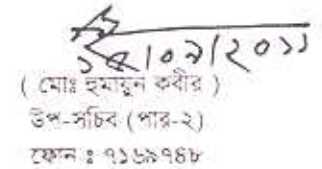 ১৫/০৯/২০১১
( মোঃ হুমায়ুন কবীর )
উপ-সচিব (পার-২)
ফোন ঃ ৭১৬৯৭৪৮